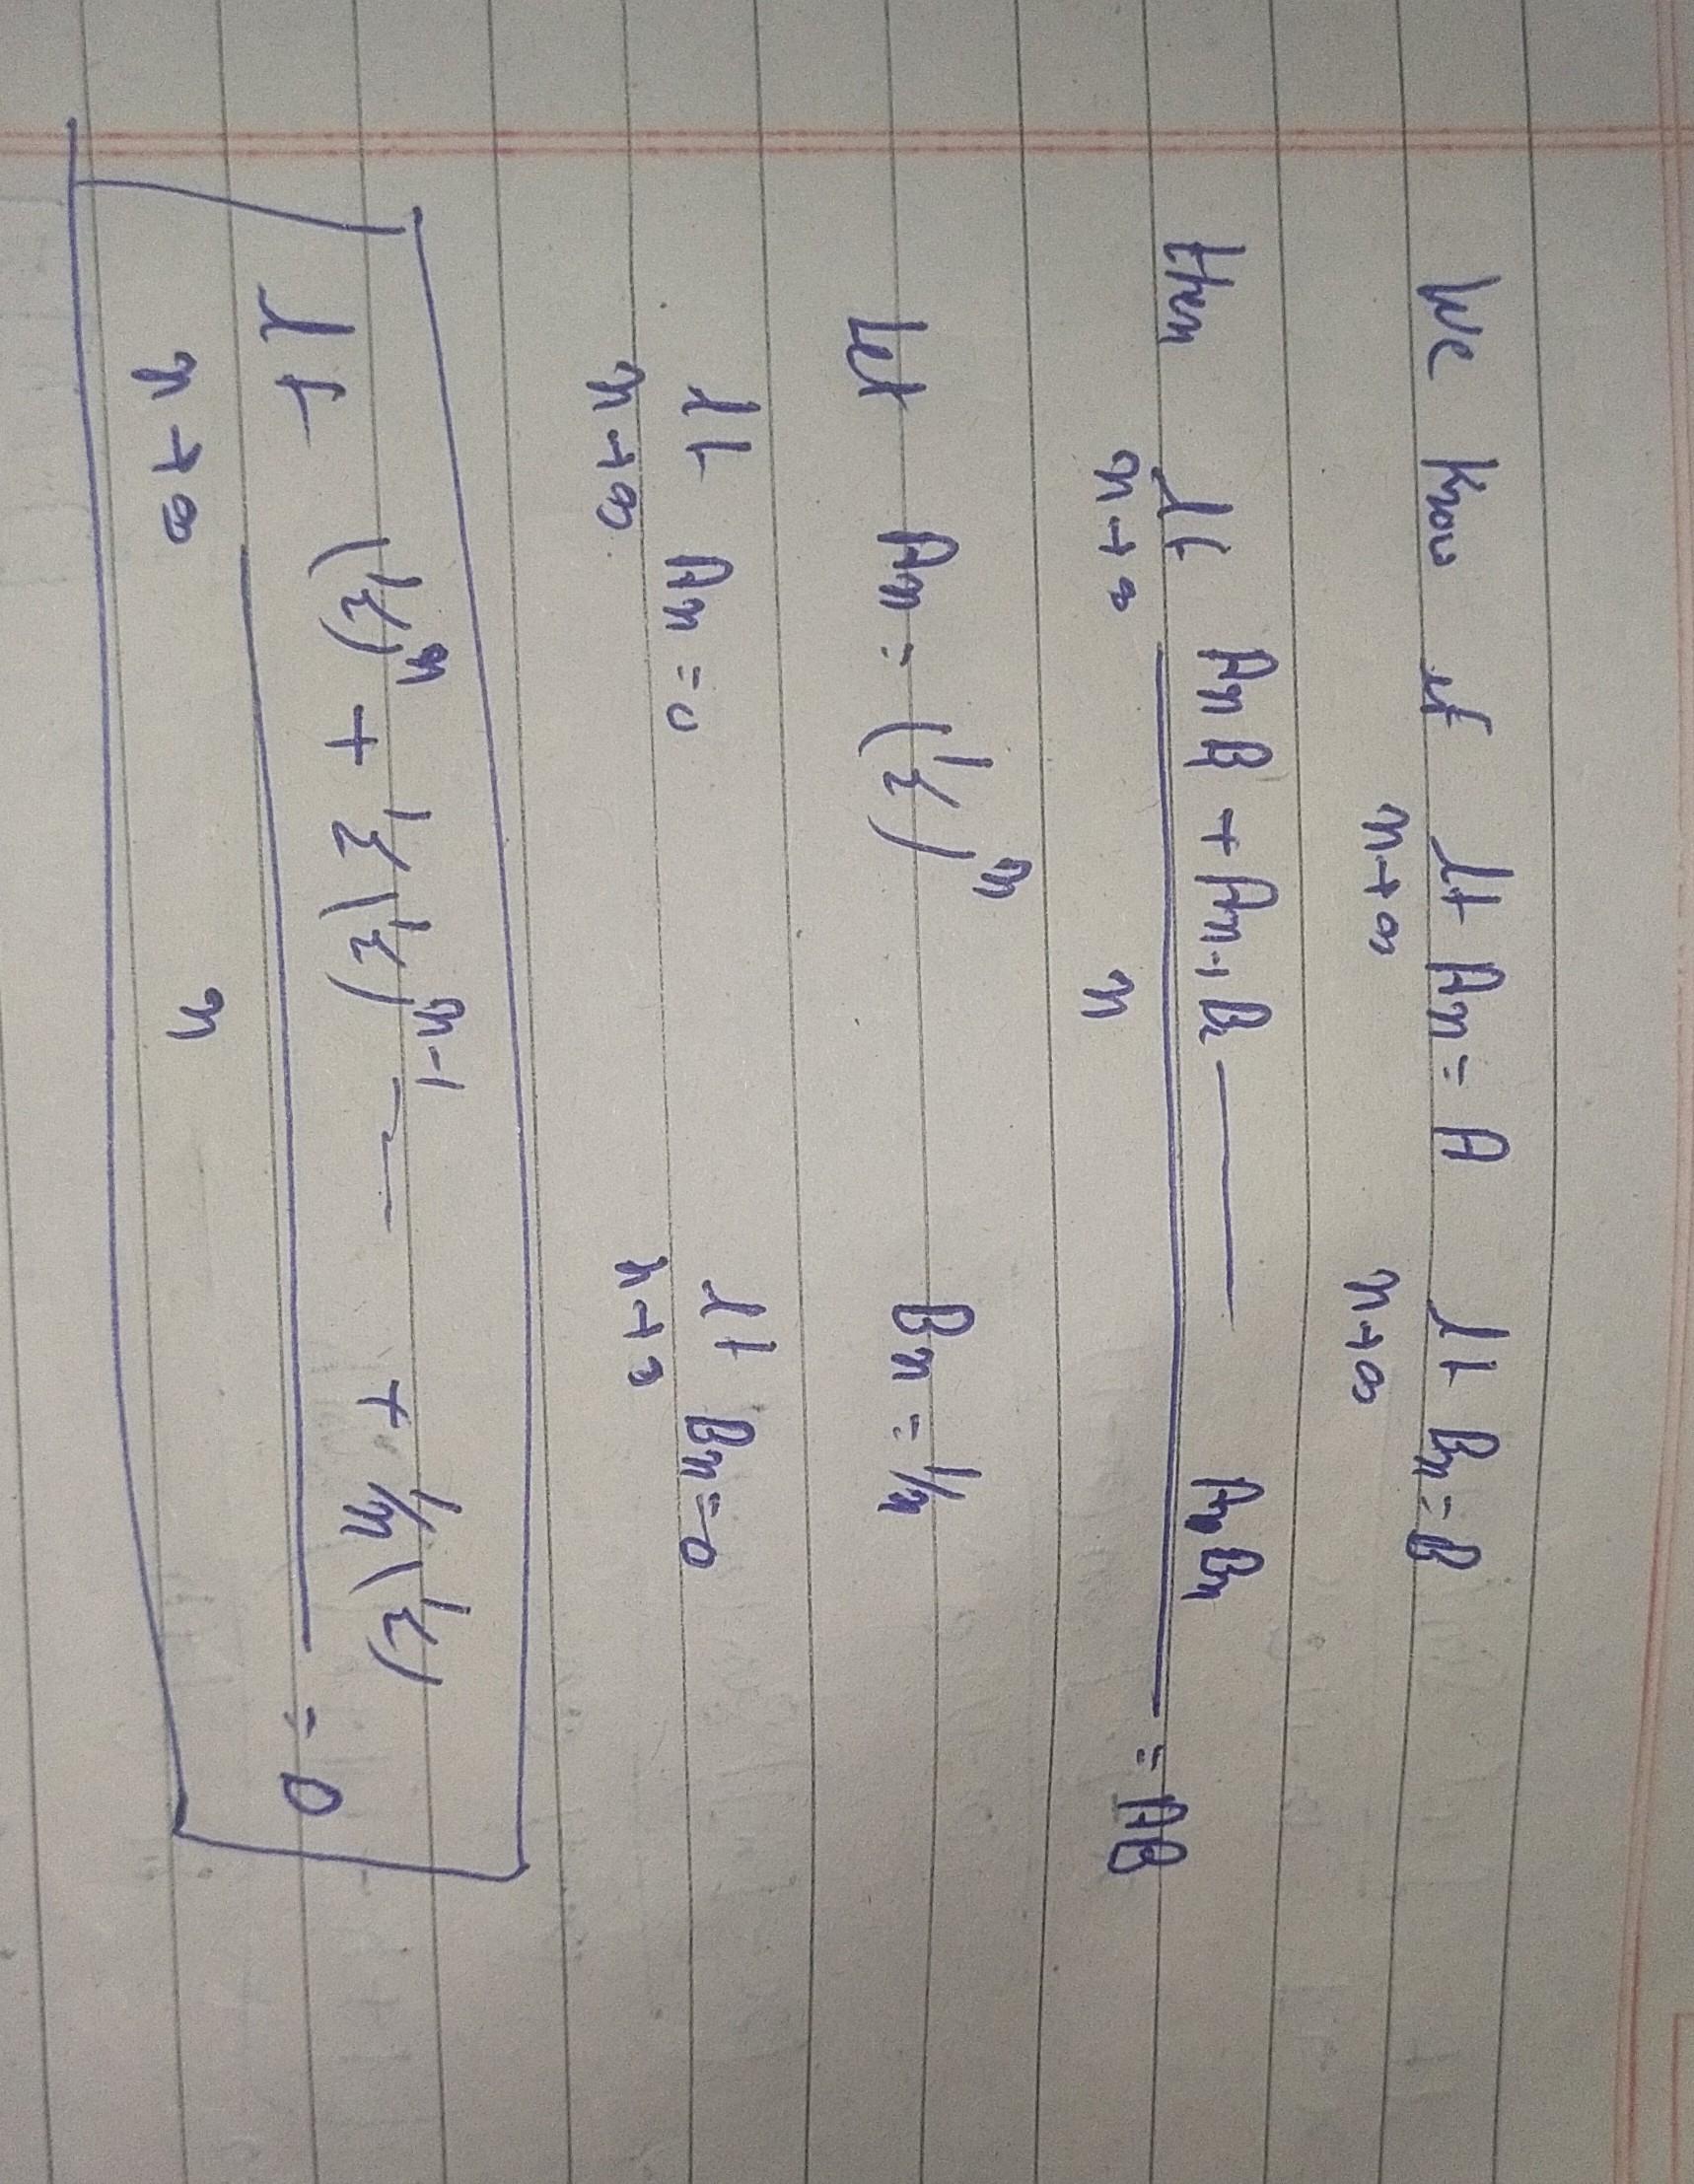 We know if lt n→∞ An = A lt n→∞ Bn = B
then lt n→∞ (An B1 + An-1 B2 ——— A1 Bn) / n = AB
let An = (1/2)^n Bn = 1/n
lt n→∞ An = 0 lt n→∞ Bn = 0
lt n→∞ ((1/2)^n + 1/2 (1/2)^n-1 — — + 1/n (1/2)) / n = 0